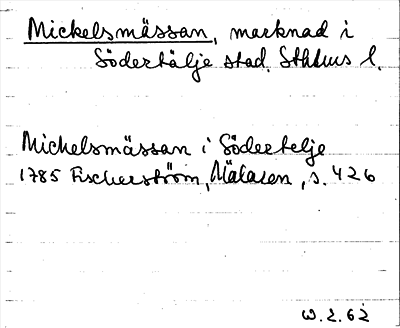 Mickelsmässan, marknad i
Södertälje stad. Sthlms l.
Michelsmässan i Södertelje
1785 Fischerström, Mälaren, s. 426
W.2.62